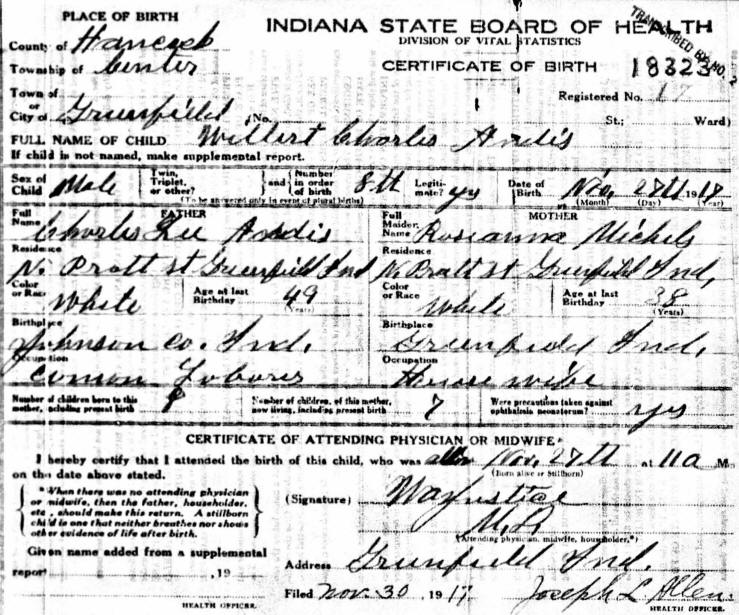 PLACE OF BIRTH
INDIANA STATE BOARD OF HEALTH
TRANSCRIBED
DIVISION OF VITAL STATISTICS
County of Hancock
Township of Center
CERTIFICATE OF BIRTH
18323
Town of
or
City of Greenfield
No.
Registered No. 17
St.; Ward)
FULL NAME OF CHILD Willert Charles Andis
If child is not named, make supplemental report.
Sex of Child Male
Twin, Triplet, or other?
and
Number in order of birth 8th
(To be answered only in event of plural births)
Legitimate? yes
Date of Birth Nov. 27th 191
(Month) (Day) (Year)
FATHER
Full Name Charles Lee Andis
MOTHER
Full Maiden Name Roseanna Michels
Residence
N. Pratt st Greenfield Ind
Residence
N. Pratt st Greenfield Ind,
Color or Race White
Age at last Birthday 49 (Years)
Color or Race White
Age at last Birthday 38 (Years)
Birthplace
Johnson Co. Ind.
Birthplace
Greenfield Ind,
Occupation
Comon Laborer
Occupation
House wife
Number of children born to this mother, including present birth 8
Number of children, of this mother, now living, including present birth 7
Were precautions taken against ophthalmia neonatorum? yes
CERTIFICATE OF ATTENDING PHYSICIAN OR MIDWIFE*
I hereby certify that I attended the birth of this child, who was alive Nov. 27th at 11 a M.
(Born alive or Stillborn)
on the date above stated.
*When there was no attending physician
or midwife, then the father, householder,
etc., should make this return. A stillborn
child is one that neither breathes nor shows
other evidence of life after birth.
(Signature)
(Attending physician, midwife, householder.*)
Given name added from a supplemental
report , 19
Address Greenfield Ind.
Filed Nov. 30, 191 Joseph L Allen
HEALTH OFFICER.
HEALTH OFFICER.